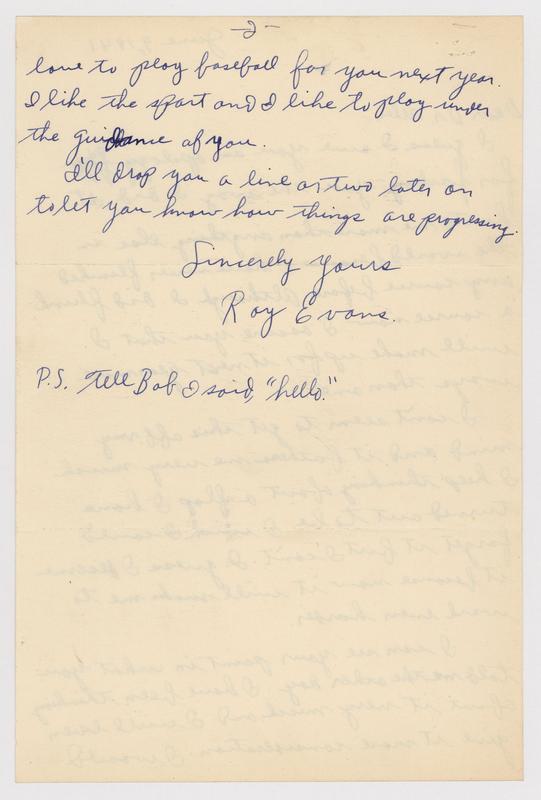 -2-
love to play baseball for you next year.
I like the sport and I like to play under
the guidance of you.
I'll drop you a line or two later on
to let you know how things are progressing.
Sincerely yours
Roy Evans.
P.S. Tell Bob I said, "hello."